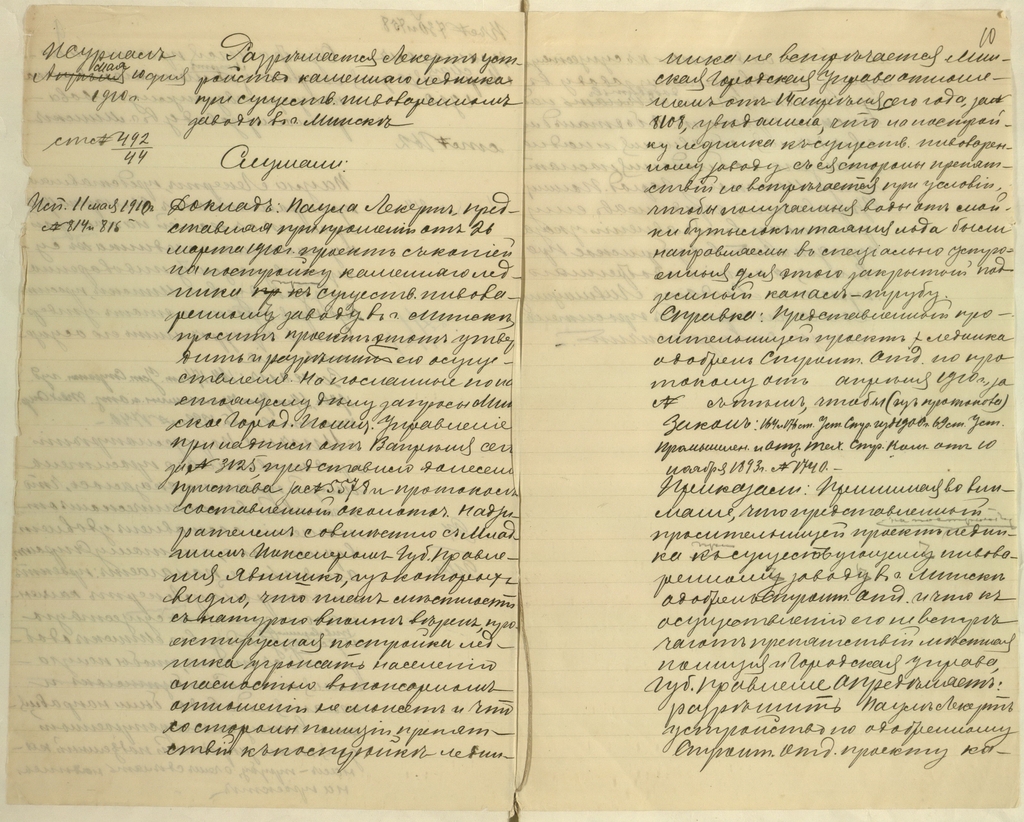 Журналъ
мая
Апрѣля 10 дня
1910 г.
ст № 492
44
Разрѣшается Лекертъ уст-
ройство каменнаго ледника
при существ. пивоваренномъ
заводѣ въ г. Минскѣ
Слушали:
Исп. 11 мая 1910 г.
№ 814 и 815
Докладъ: Паула Лекертъ, пред-
ставляя при прошеніи отъ 26
марта 1910 г. проектъ съ копіей
на постройку каменнаго лед-
ника при къ существ. пивова-
ренному заводу въ г. Минскѣ,
проситъ проектъ этотъ утвер
дить и разрѣшить его осуще-
ствленіе. На посланные по на
стоящему дѣлу запросы Мин
ское Город. Полиц. Управленіе
при надписи отъ 8 апрѣля сег
за № 3125 представило донесені
пристава за № 5578 и протоколъ
составленный околоточ. надзи
рателемъ совмѣстно съ Млад
шимъ Инженеромъ Губ. Правле-
нія Явишко, изъ которыхъ
видно, что планъ мѣстности
съ натурою вполнѣ вѣренъ, про
ектируемая постройка лед-
ника угрожать населенію
опасностью въ пожарномъ
отношеніи не можетъ и что
со стороны полиціи препят-
ствій къ постройкѣ ледни-
10
ника не встрѣчается. Мин-
ская Городская Управа отноше-
ніемъ отъ 14 апрѣля сего года, за №
8108, увѣдомила, что по построй-
ку ледника къ существ. пивоварен-
ному заводу съ ея стороны препят-
ствій не встрѣчается при условіи,
чтобы получаемыя воды отъ мой-
ки бутылокъ и таянія льда были
направляемы въ спеціально устро-
енный для этого закрытый под
земный каналъ-трубу
Справка: Представленный про-
сительницей проектъ ледника
одобренъ Строит. Отд. по про
токолу отъ апрѣля 1910 г., за
№ съ тѣмъ, чтобы (изъ протокола)
Законъ: ст. Уст. Стр. изд. 1900 г. 69 ст. Уст.
Промышлен. и отз. Тех. Стр. Ком. отъ 10
ноября 1893 г. № 1740.-
Приказали: Принимая во вни-
маніе, что представленный
на постройку
просительницей проектъ ледни-
ка къ существующему пивова-
ренному заводу въ г. Минскѣ
одобренъ Строит. Отд. и что къ
осуществленію его не встрѣ-
чаютъ препятствій мѣстная
полиція и Городская Управа,
Губ. Правленіе Опредѣляетъ:
разрѣшить Паулѣ Лекертъ
устройство по одобренному
Строит. Отд. проекту ка-